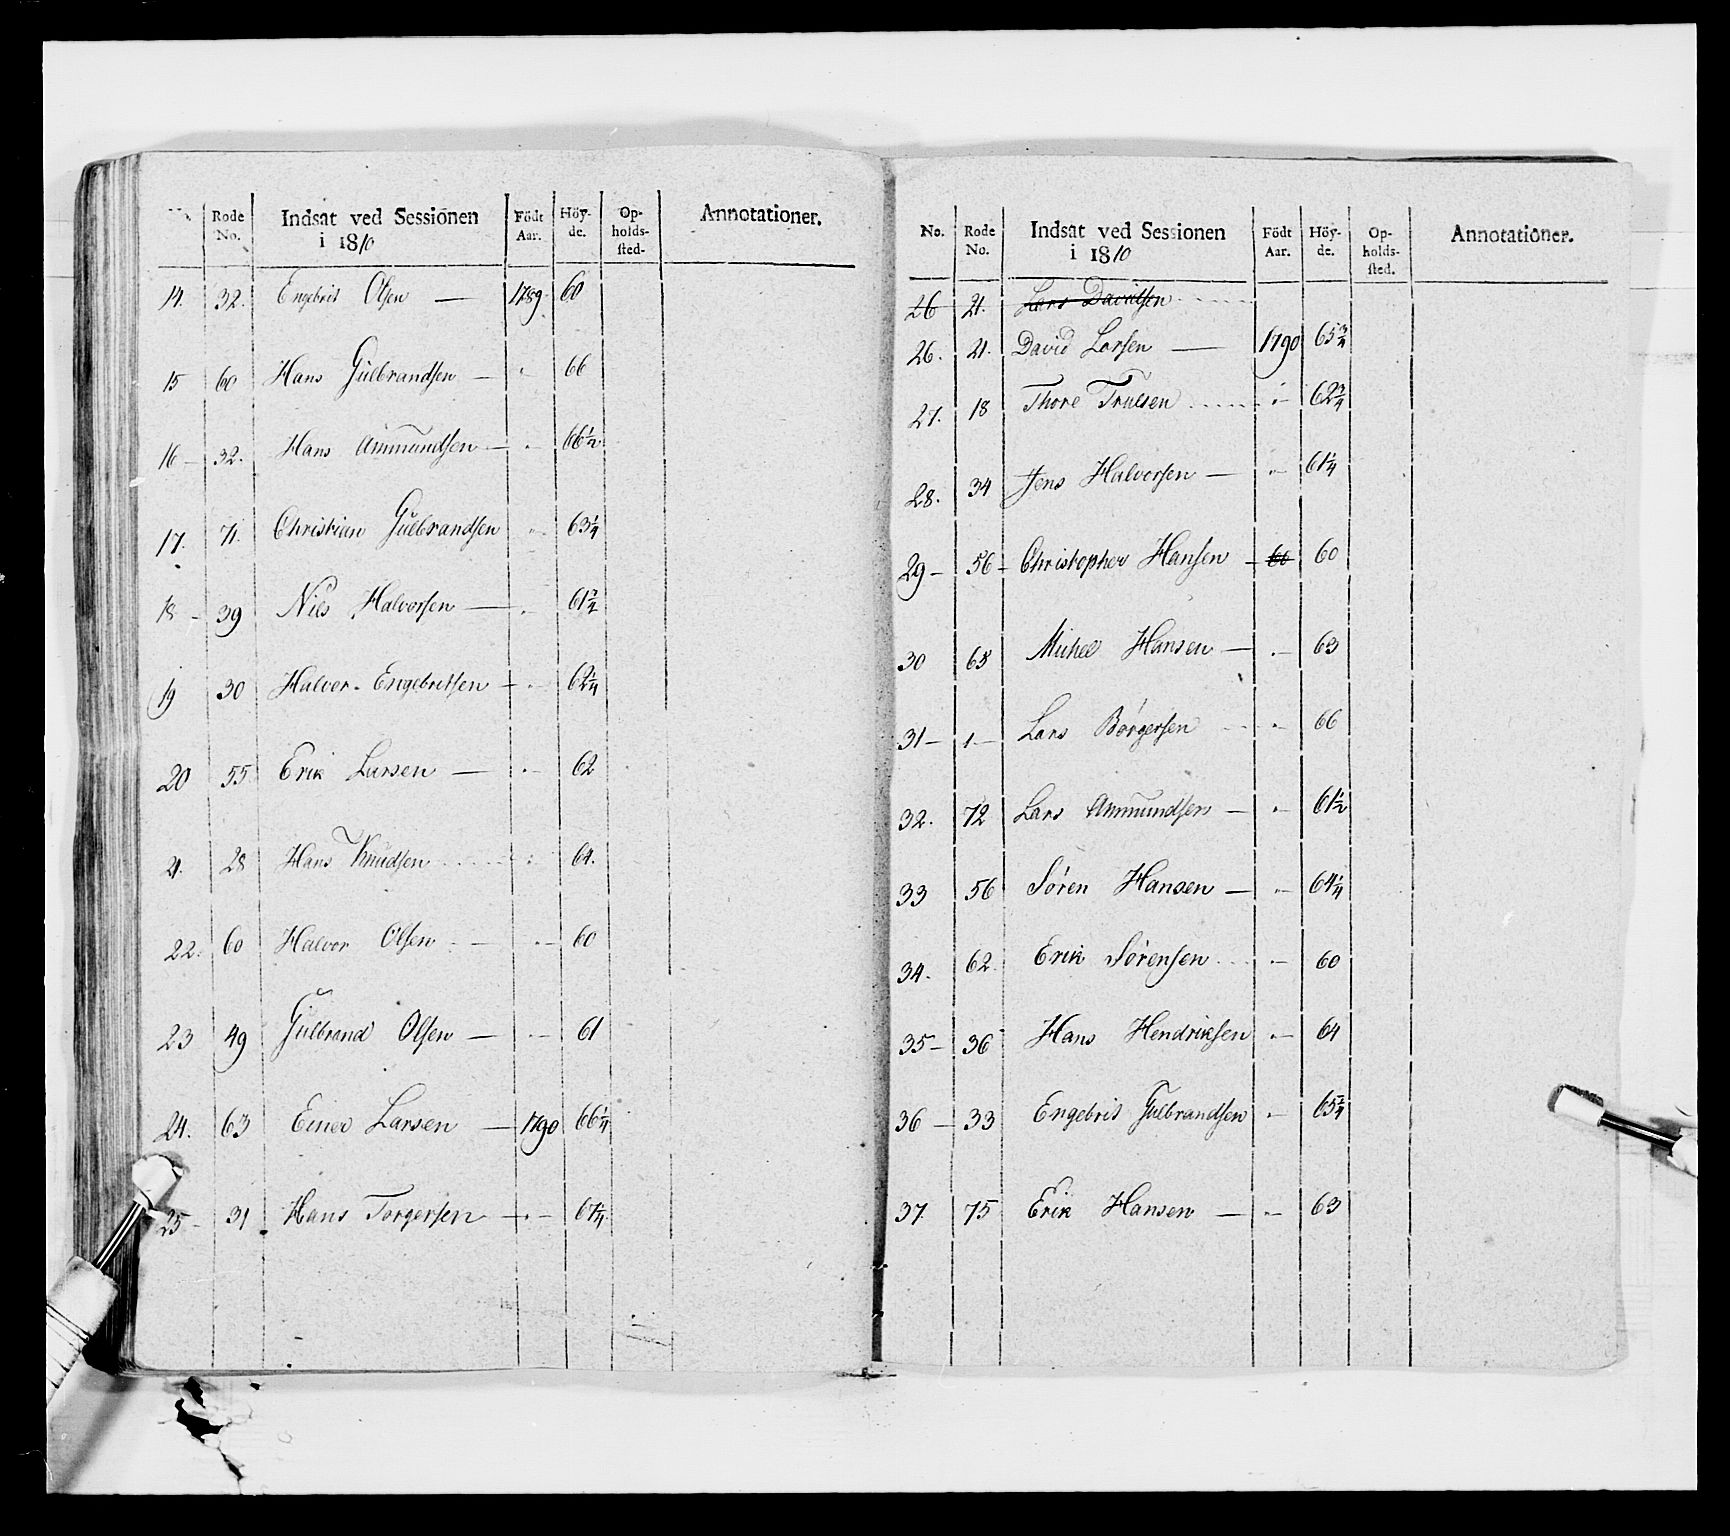 Rode No. Indsat ved Sessionen i 1810 Födt Aar. Höy-de. Op-holds-sted. Annotationer.
14. 32. Engebrit Olsen — 1789. 60
15 60 Hans Gulbrandsen — " 66
16 — 32. Hans Ammundsen — " 66½
17. 71. Christian Gulbrandsen " 63¼
18 — 39 Nils Halvorsen — " 61¾
19 30 Halvor Engebritsen — " 62¼
20 55 Erik Larsen — " 62
21. 28 Hans Knudsen " 64.
22. 60 Halvor Olsen " 60
23 49 Gulbrand Olsen — " 61
24. 63 Einer Larsen — 1790 66¼
25 — 31 Hans Torgersen — " 67¼
No. Rode No. Indsat ved Sessionen i 1810 Födt Aar. Höy-de. Op-holds-sted. Annotationer.
26 21. Lars Davidsen
26. 21. David Larsen — 1790 65¾
27. 18 Thore Trulsen " 62¾
28. 34 Jens Halvorsen — " 61¼
29 — 56 — Christopher Hansen — 60 60
30 65 Michel Hansen — " 63
31 — 1 — Lars Börgersen " 66
32. 72 Lars Ammundsen — " 61½
33 56 Sören Hansen — " 64¼
34. 62. Erik Sörensen " 60
35 — 36 Hans Hendriksen " 64
36 — 33 Engebrit Gulbrandsen " 65¾
37. 75 Erik Hansen — " 63